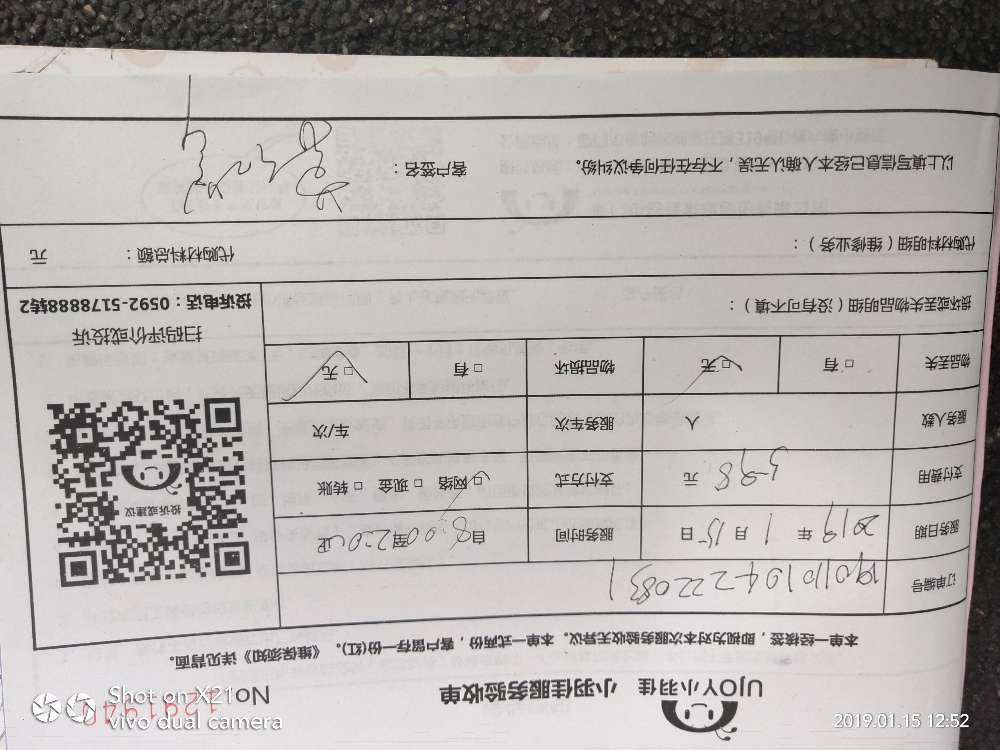 UJOY小羽佳 小羽佳服务验收单 No
本单一经接签，即视为对本次服务验收无异议。本单一式两份，客户留存一份(红)。《维保须知》详见背面。
订单编号
服务日期 2019 年 1 月 15 日 服务时间 自 8:00 至 12:00 止
支付费用 398 元 支付方式 □ 网络 □ 现金 □ 转账
服务人数 人 服务车次 车/次
物品丢失 □ 有 □ 无 物品损坏 □ 有 □ 无
投诉或建议
扫码评价或投诉
投诉电话：0592-5178888转2
损坏或丢失物品明细（没有可不填）：
代购材料明细（维修业务）： 代购材料总额： 元
以上填写信息已经本人确认无误，不存在任何争议纠纷。 客户签名：
Shot on X21
vivo dual camera
2019.01.15 12:52